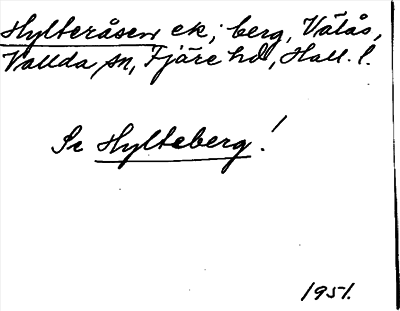 Hylteråsen ek; berg, Vätås,
Vallda sn, Fjäre hd, Hall. l.
Se Hylteberg!
1951.